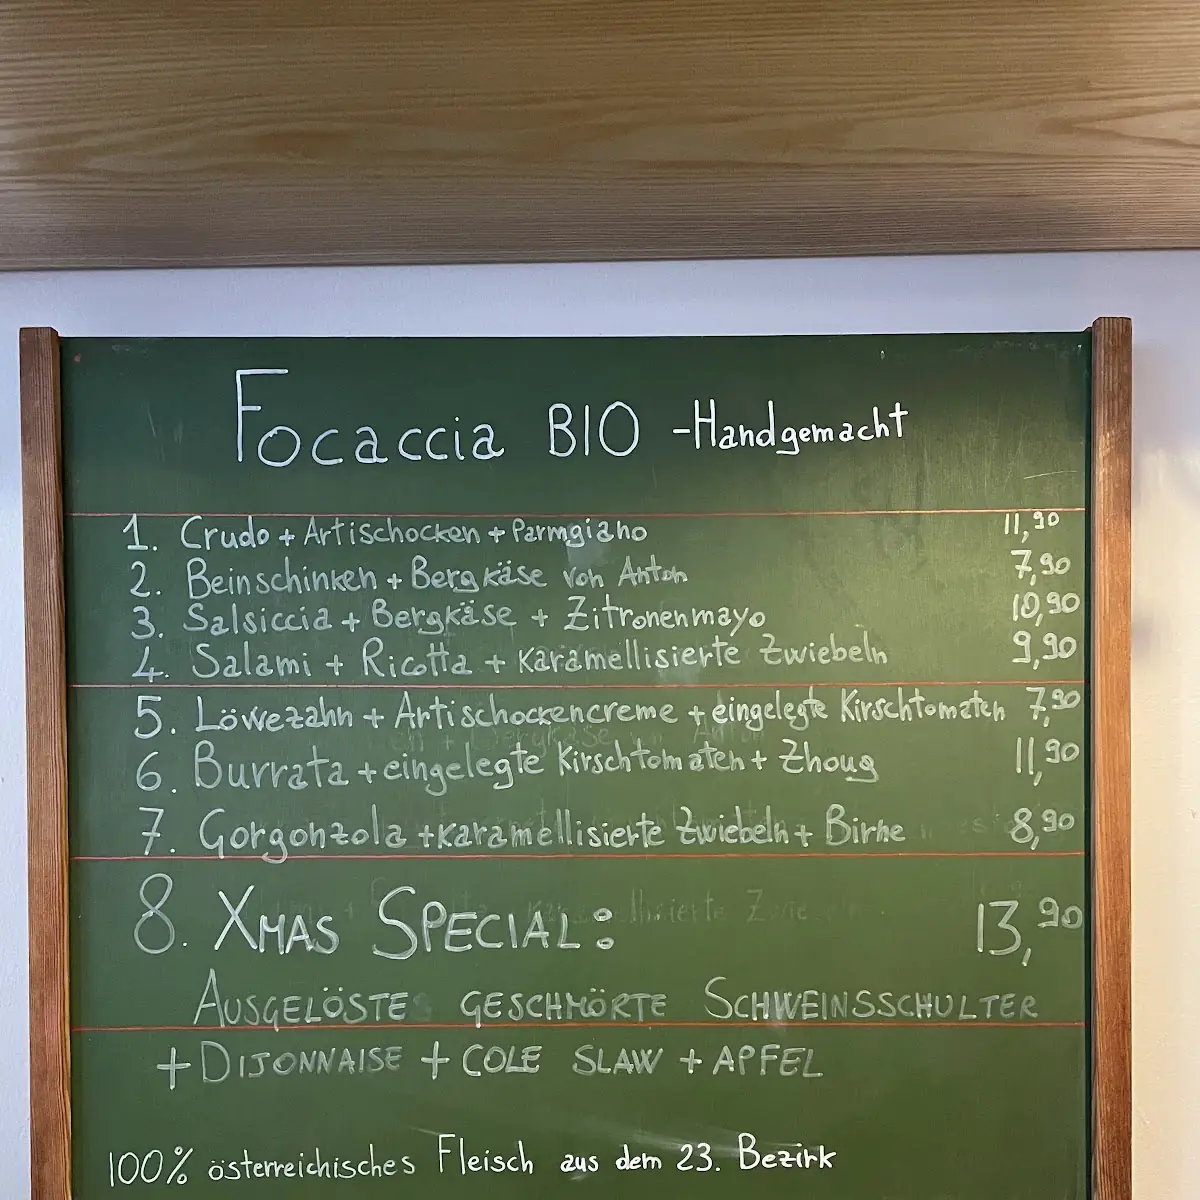 Focaccia BIO - Handgemacht
1. Crudo + Artischocken + Parmgiano 11,90
2. Beinschinken + Bergkäse von Anton 7,90
3. Salsiccia + Bergkäse + Zitronenmayo 10,90
4. Salami + Ricotta + karamellisierte Zwiebeln 9,90
5. Löwezahn + Artischockencreme + eingelegte Kirschtomaten 7,90
6. Burrata + eingelegte Kirschtomaten + Zhoug 11,90
7. Gorgonzola + karamellisierte Zwiebeln + Birne 8,90
8. XMAS SPECIAL: 13,90
AUSGELÖSTE GESCHMÖRTE SCHWEINSSCHULTER
+ DIJONNAISE + COLE SLAW + APFEL
100% österreichisches Fleisch aus dem 23. Bezirk